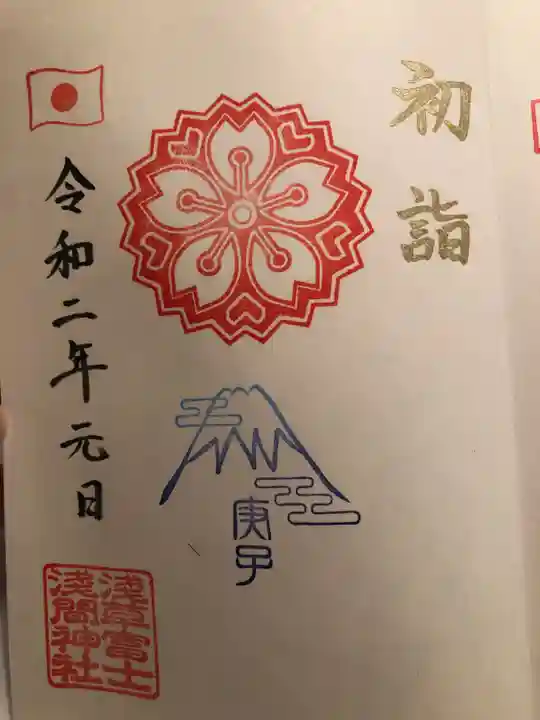 初詣
庚子
令和二年元日
浅草富士
浅間神社